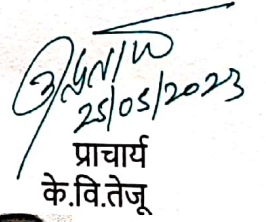 25/05/2023
प्राचार्य
के.वि.तेजू